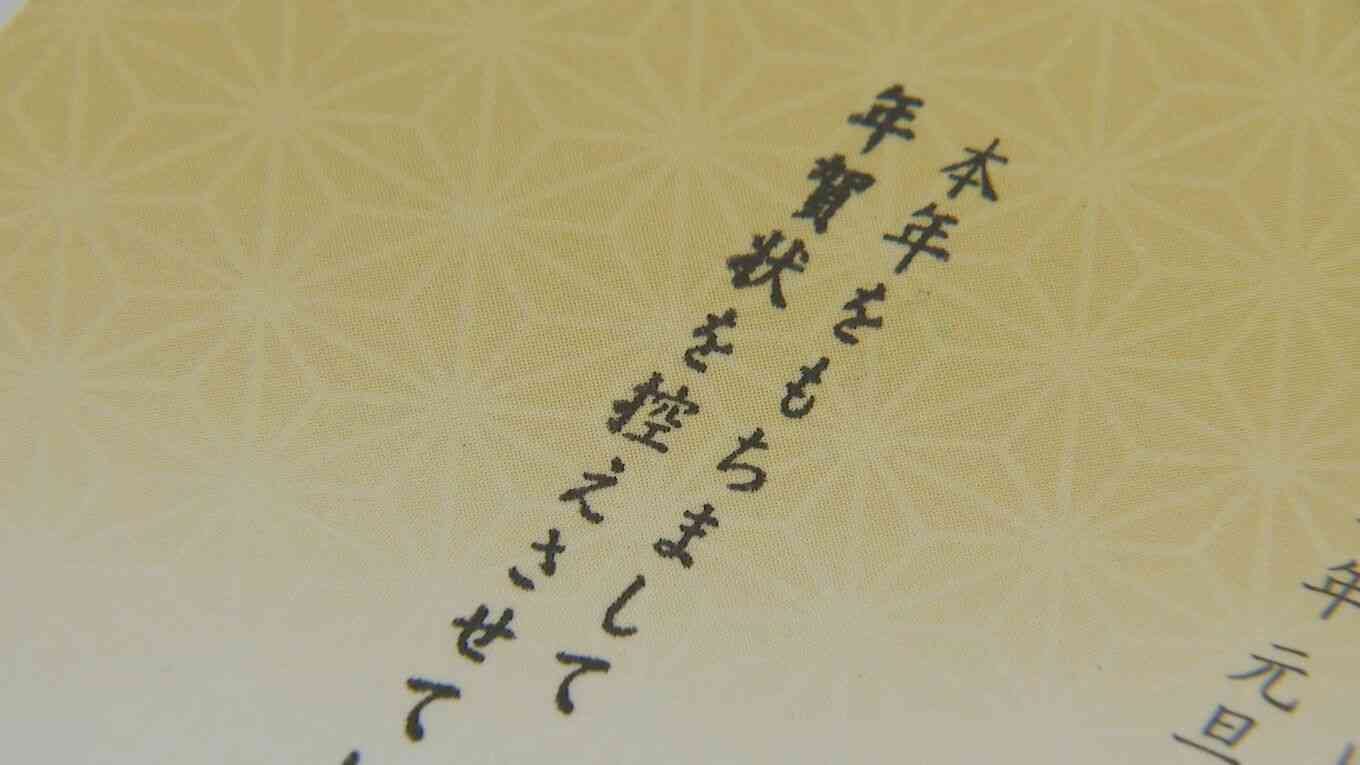 年元旦
本年をもちまして
年賀状を控えさせて